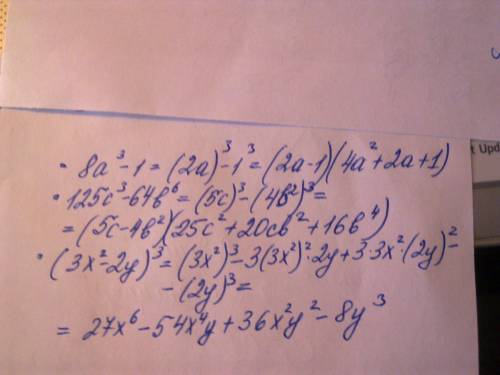 • 8a³-1 = (2a)³-1³ = (2a-1)(4a²+2a+1)
• 125c³-64b⁶ = (5c)³-(4b²)³=
= (5c-4b²)(25c²+20cb²+16b⁴)
• (3x²-2y)³ = (3x²)³-3(3x²)²·2y+3·3x²·(2y)²-
-(2y)³=
= 27x⁶-54x⁴y+36x²y²-8y³
t Upd